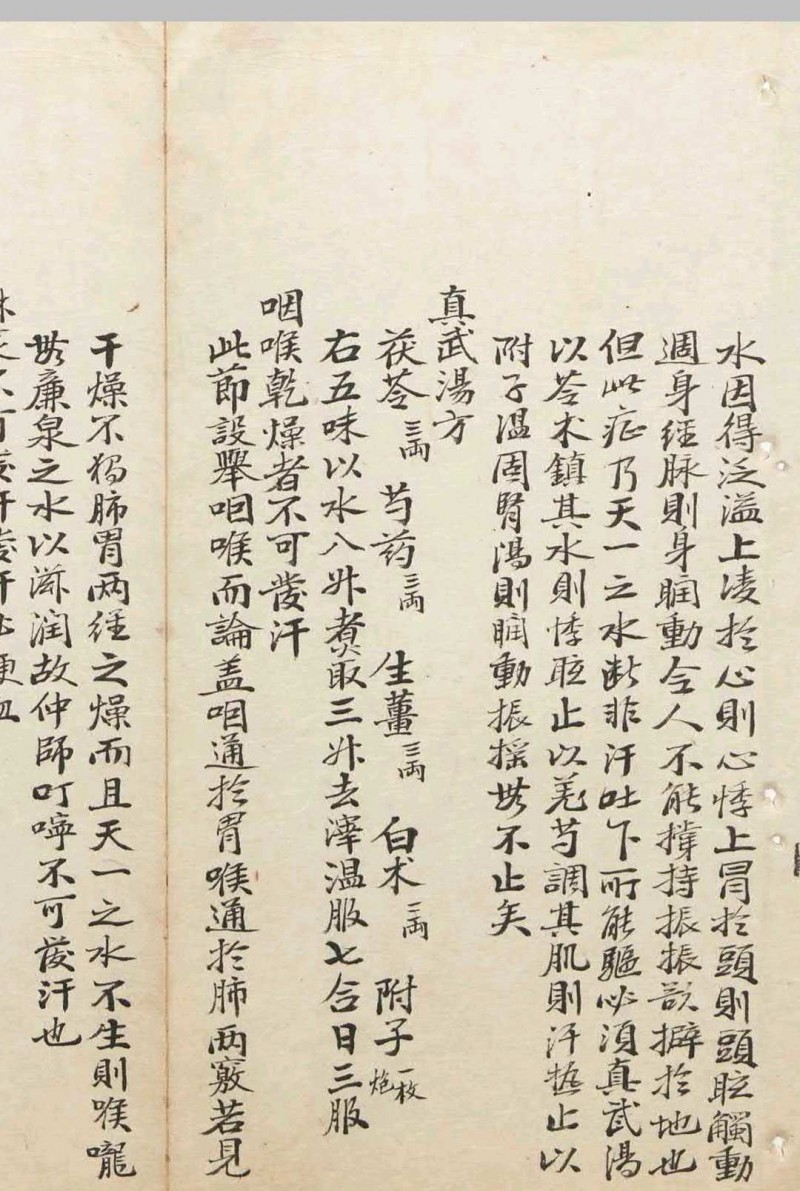 水因得泛溢上凌於心則心悸上冒於頭則頭眩觸動
週身經脉則身瞤動令人不能撑持振振欲擗於地也
但此症乃天一之水断非汗吐下所能驅必湏真武湯
以苓术鎮其水則悸眩止以羌芍調其肌則汗热止以
附子温固腎湯則瞤動振摇毋不止矣
真武湯方
茯苓三両 芍药三両 生薑三両 白术二両 附子一枚炮
右五味以水八升煮取三升去滓温服七合日三服
咽喉乾燥者不可發汗
此節設舉咽喉而論盖咽通於胃喉通於肺两竅若見
干燥不獨肺胃两經之燥而且天一之水不生則喉嚨
毋廉泉之水以滋润故仲師叮嚀不可發汗也
淋家不可發汗發汗必便血